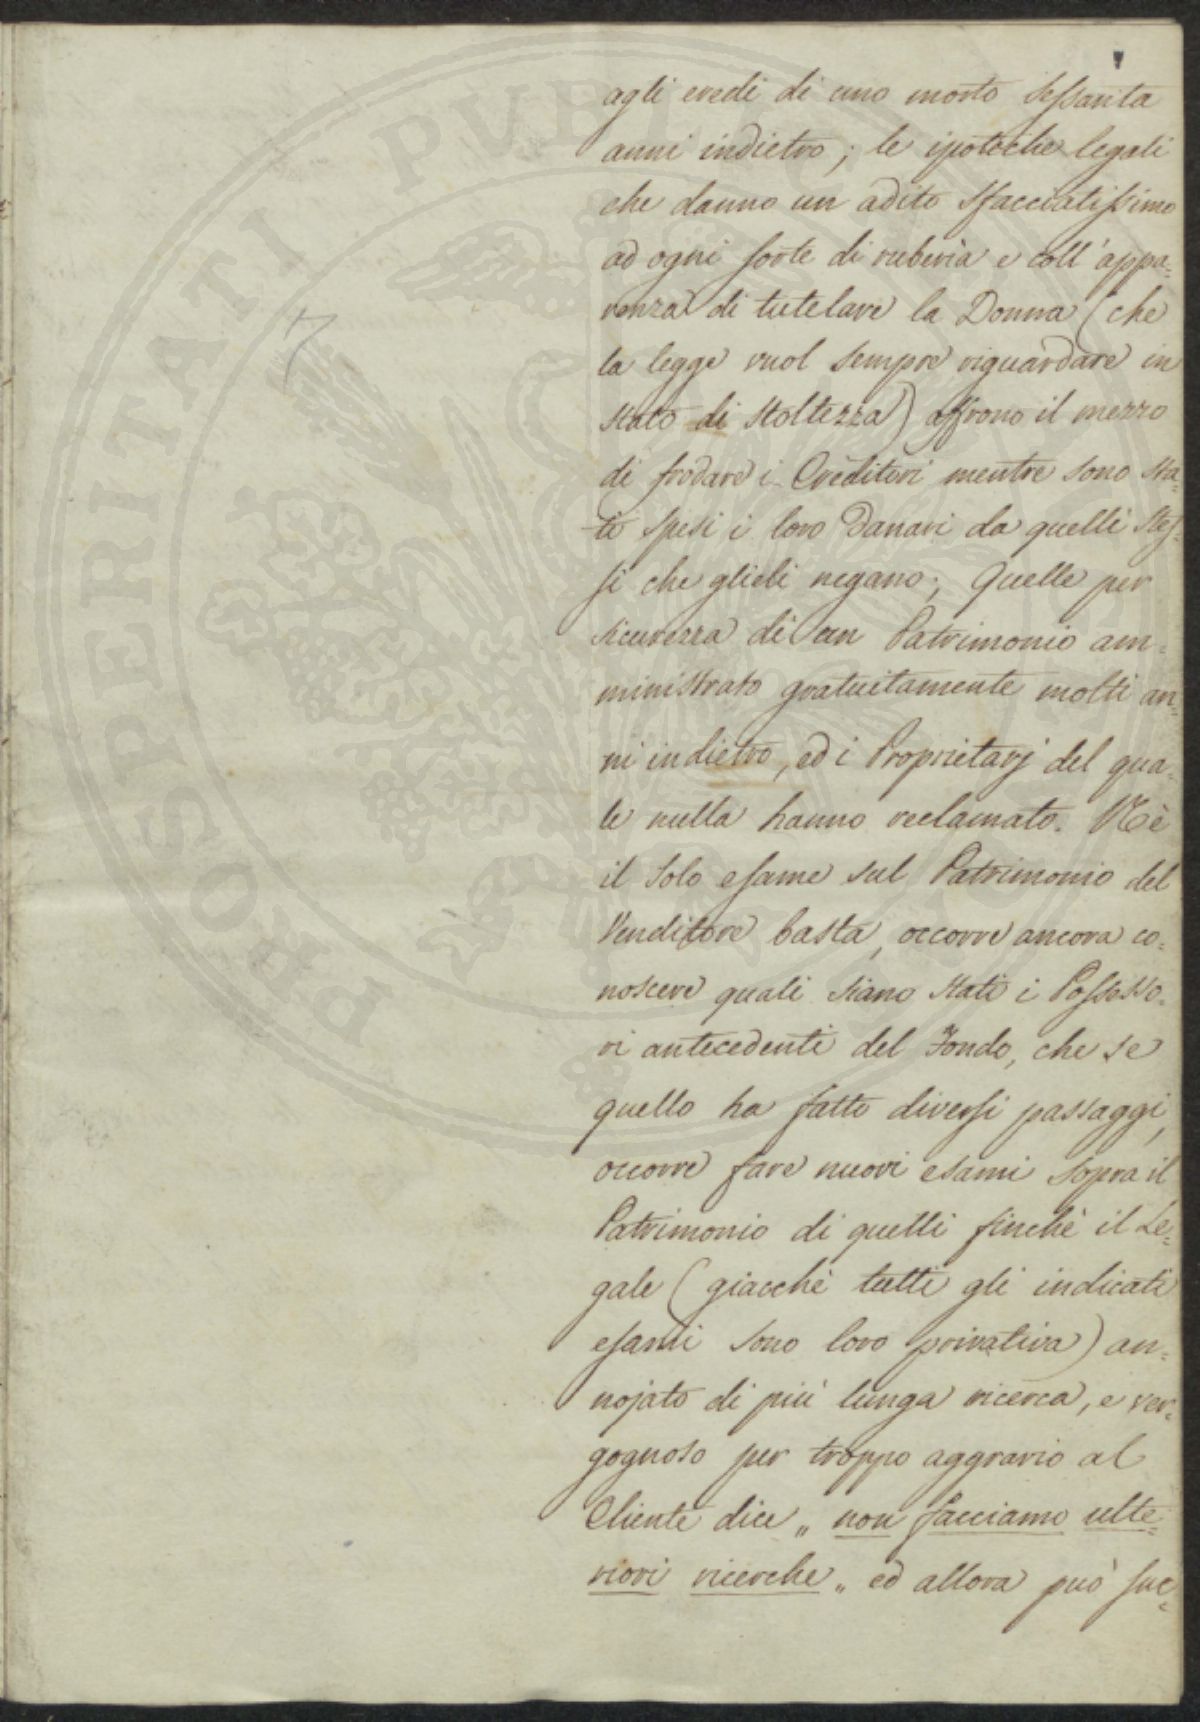 agli eredi di uno morto sessanta
anni indietro; le ipoteche legali
che danno un adito sfacciatissimo
ad ogni sorte di ruberia e coll'appa=
renza di tutelare la Donna (che
la legge vuol sempre riguardare in
stato di stoltezza) offrono il mezzo
di frodare i Creditori mentre sono sta=
ti spesi i loro danari da quelli stes=
si che glieli negano; Quelle per
sicurezza di un Patrimonio am=
ministrato gratuitamente molti an=
ni indietro, ed i Proprietarj del qua=
le nulla hanno reclamato. Nè
il solo esame sul Patrimonio del
Venditore basta, occorre ancora co=
noscere quali siano stati i Possesso=
ri antecedenti del Fondo, che se
quello ha fatto diversi passaggi,
occorre fare nuovi esami sopra il
Patrimonio di quelli finchè il Le=
gale (giacchè tutti gli indicati
esami sono loro privativa) an=
nojato di più lunga ricerca, e ver=
gognoso per troppo aggravio al
Cliente dice „ non facciamo ulte=
riori ricerche „ ed allora può suc=
7
PROSPERITATI PUBLICAE